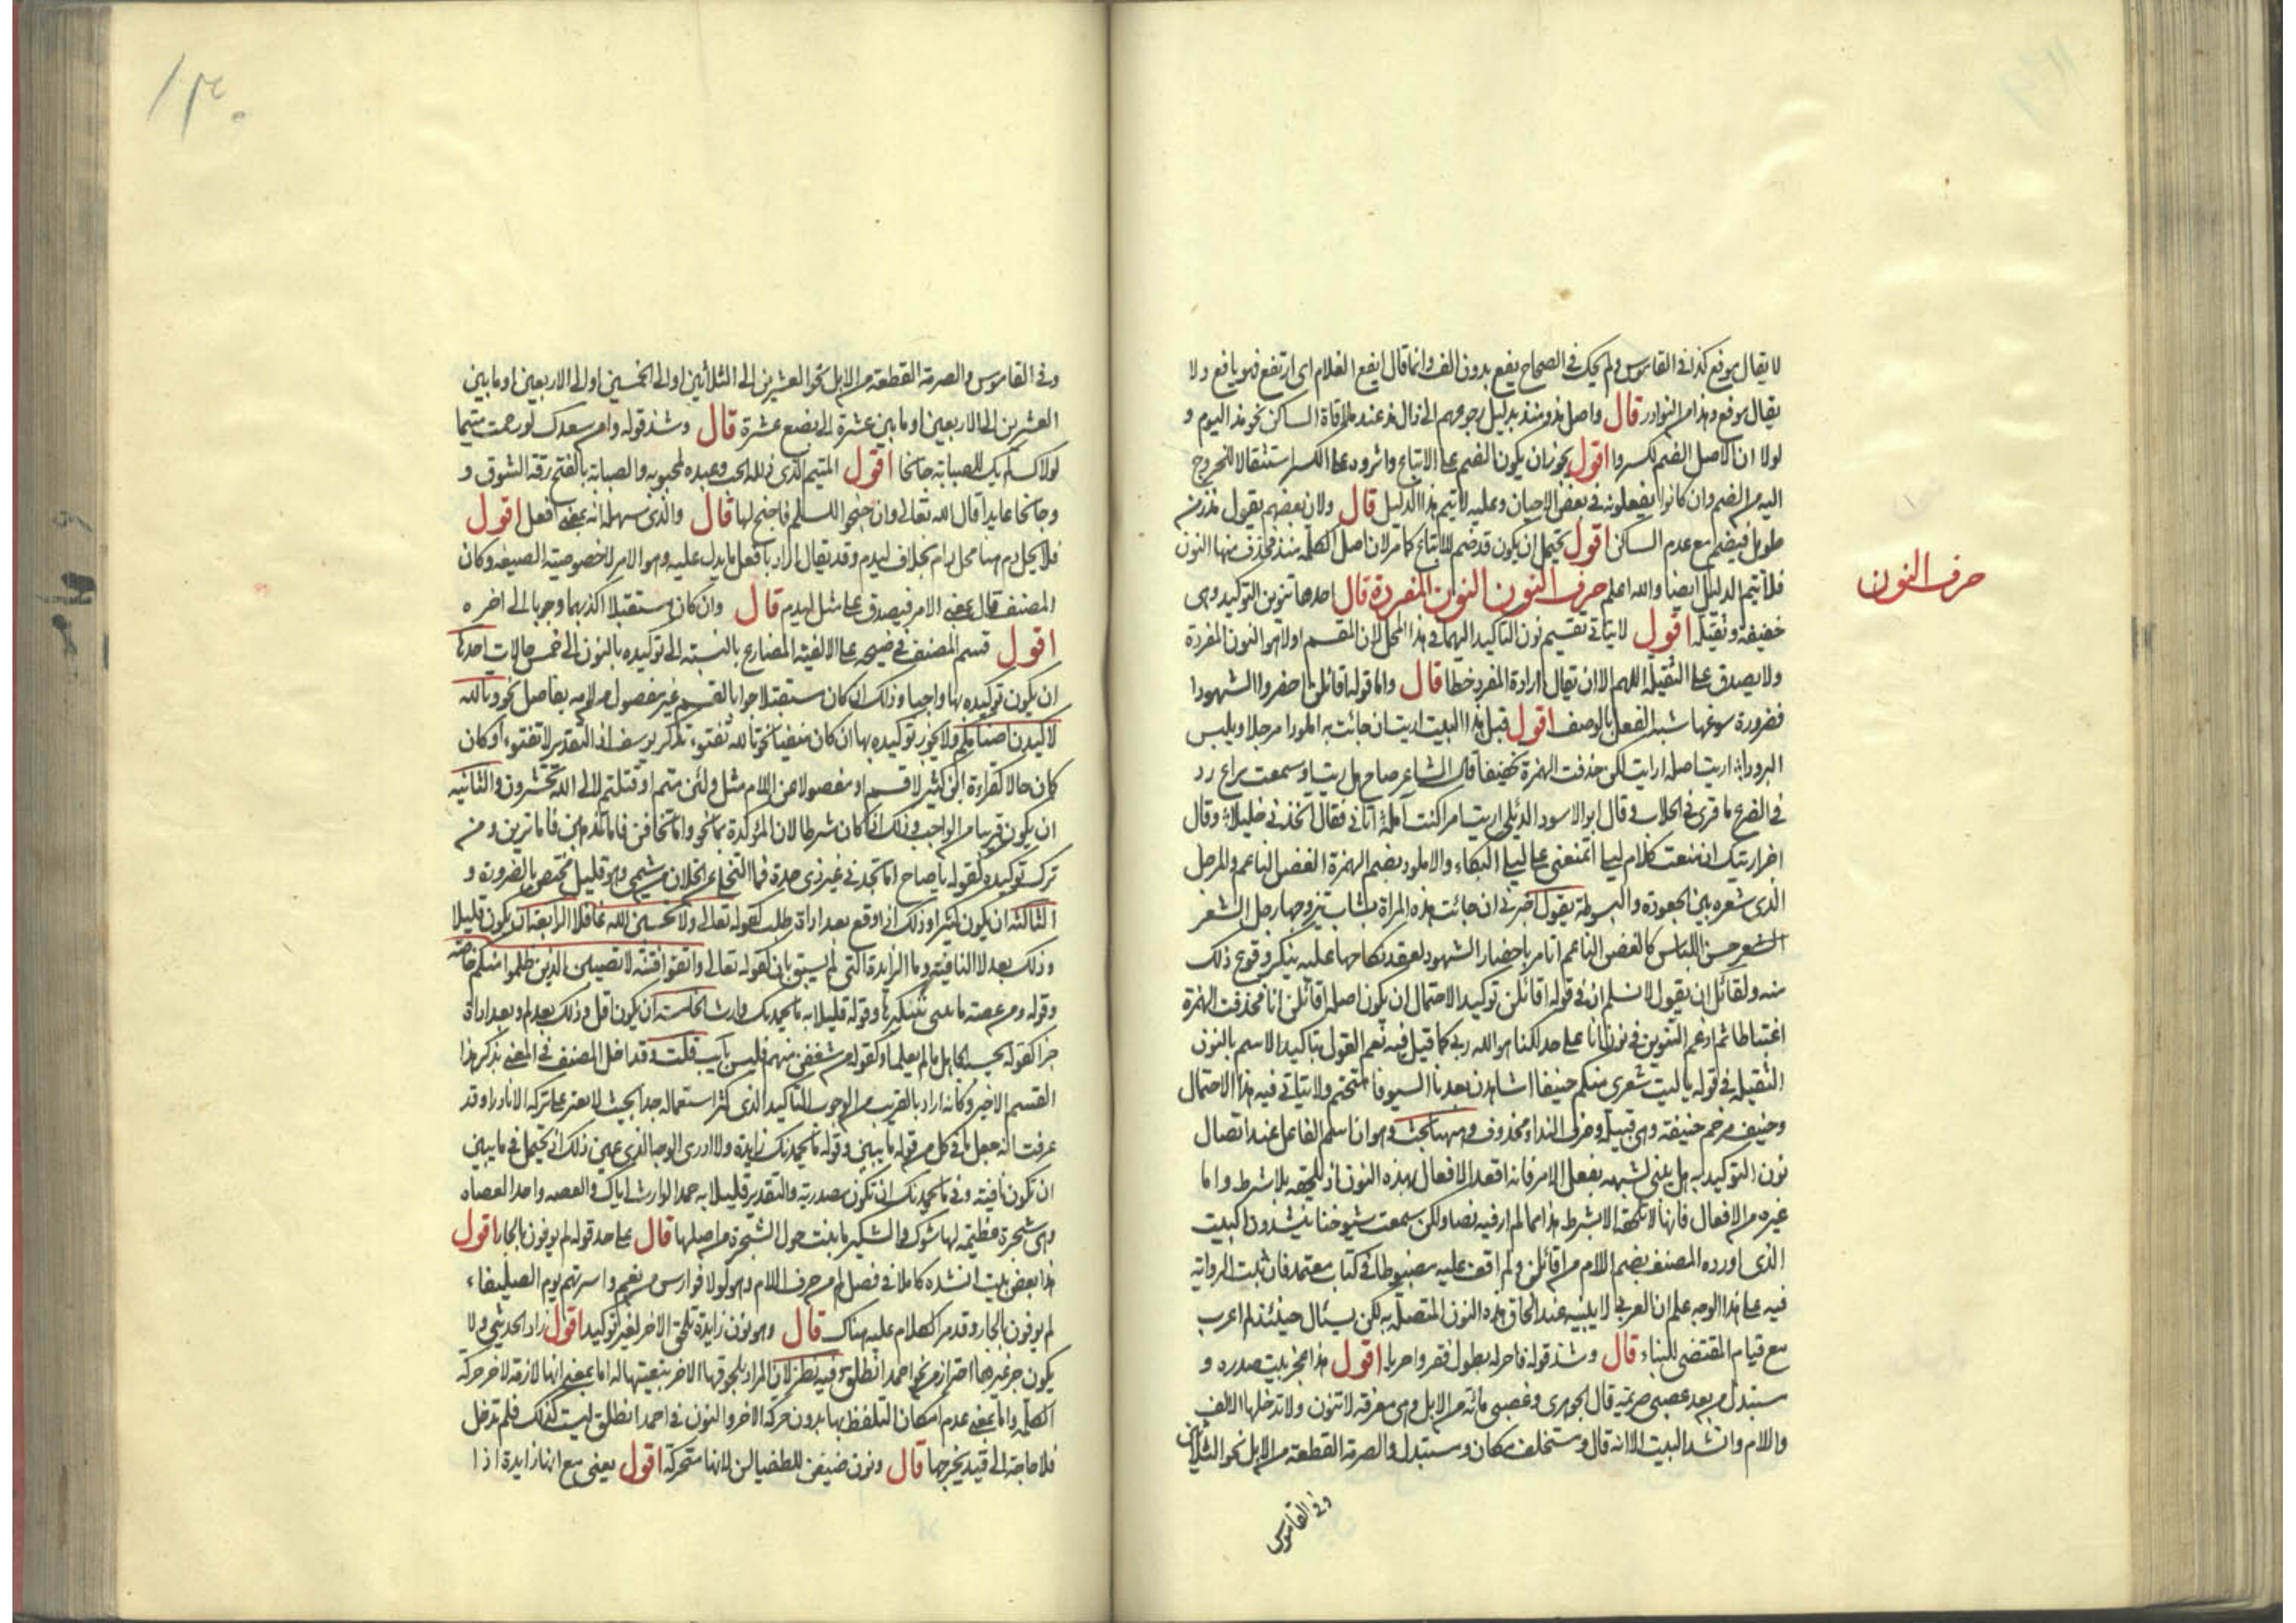 لا يقال موفع كذا في القاموس ولم يحك في الصحاح يفع بدون الف وانما قال ايفع الغلام اى ارتفع فهو يافع ولا
يقال موفع وهذا من النوادر قال واصل مذ منذ بدليل رجوعهم الى ذال مذ عند ملاقاة الساكن نحو مذ اليوم و
لولا ان الاصل الضم لكسروا اقول يجوز ان يكون الضم على الاتباع واثروه على الكسر استثقالا للخروج
اليه من الضم وان كانوا يفعلونه في بعض الاحيان وعليه لا يتم هذا الدليل قال ولان بعضهم يقول مذ زمن
طويل فيضم مع عدم الساكن اقول يحتمل ان يكون قد ضم للاتباع كما مر لان اصل الكلمة منذ فحذف منها النون
فلا يتم الدليل ايضا والله اعلم حرف النون النون المفردة قال احدها تنوين التوكيد وهى
خفيفة وثقيلة اقول لا يتاتى تقسيم نون التاكيد اليهما في هذا المحل لان المقسم اولا هو النون المفردة
ولا يصدق على الثقيلة اللهم الا ان تقال ارادة المفرد خطا قال واما قوله اقائلن احضروا الشهودا
فضرورة سوغها شبه الفعل بالوصف اقول قبل هذا البيت اريت ان جائت به املودا مرجلا ويلبس
البرودا اريت اصله ارايت لكن حذفت الهمزة تخفيفا قال الشاعر صاح هل ريت او سمعت براع رد
في الضرع ما قرى في الحلاب وقال ابو الاسود الدئلى اريت امرا كنت لم ابله اتانى فقال اتخذنى خليلا وقال
اخر اريتك ان منعت كلام ليلى اتمنعنى على ليلى البكاء والاملود بضم الهمزة الغصن الناعم والمرجل
الذى شعره بين الجعودة والبسوطة يقول اخبرنى ان جائت هذه المراة بشاب يتزوجها رجل الشعر
الشعر حسن اللباس كالغصن الناعم اتامر باحضار الشهود لعقد نكاحها عليه ينكر وقوع ذلك
منه ولقائل ان يقول لا نسلم ان في قوله اقائلن توكيدا لاحتمال ان يكون اصله اقائلن انا فحذفت الهمزة
اعتباطا ثم ادغم التنوين في نون انا على حد لكنا هو الله ربى كما قيل فيه نعم القول بتاكيد الاسم بالنون
الثقيلة في قوله يا ليت شعرى منكم حنيفا اشاهرن بعدنا السيوفا متحتم ولا يتاتى فيه هذا الاحتمال
وحنيف مرخم حنيفة وهى قبيلة وحرف النداء محذوف وههنا بحث وهو ان اسم الفاعل عند اتصال
نون التوكيد به هل يبنى لشبهه بفعل الامر فانه اقعد الافعال بهذه النون اذ تلحقه بلا شرط واما
غيره من الافعال فانها لا تلحقه الا بشرط هذا مما لم ار فيه نصا ولكن سمعت شيوخنا ينشدون البيت
الذى اورده المصنف بضم اللام من اقائلن ولم اقف عليه مضبوطا في كتاب معتمد فان ثبتت الرواية
فيه على هذا الوجه علم ان العرب لا يبنيه عند الحاق هذه النون المتصلة به لكن يسئال حينئذ لم اعرب
مع قيام المقتضى للبناء قال وشذ قوله فاحر به بطول فقر واحريا اقول هذا عجز بيت صدره و
مستبدل من بعد عصبى صريمة قال الجوهرى وغصبى مائة من الابل وهى معرفة لا تنون ولا تدخلها الالف
واللام وانشد البيت الا انه قال ومستخلف مكان ومستبدل والصرمة القطعة من الابل نحو الثلاثين
حرف النون
وفى القاموس
وفى القاموس والصرمة القطعة من الابل نحو العشرين الى الثلاثين او الى الخمسين او الى الاربعين او ما بين
العشرين الى الاربعين او ما بين عشرة الى بضع عشرة قال وشذ قوله وامن سعدك لو رحمت متيما
لولاك لم يك للصبابة جانحا اقول المتيم الذى ذلله الحب وعبده لمحبوبه والصبابة بالفتح رقة الشوق و
وجانحا مايلا قال الله تعالى وان جنحوا للسلم فاجنح لها قال والذى سهله انه بمعنى افعل اقول
فلا يحل دم هنا محل ادم بخلاف ليدم وقد يقال المراد بافعل ما يدل عليه وهو الامر لا خصوصية الصيغة وكان
المصنف قال بمعنى الامر فيصدق على مثل ليدم قال وان كان مستقبلا اكد بهما وجوبا الى اخره
اقول قسم المصنف في توضيحه على الالفية المضارع بالنسبة الى توكيده بالنون الى خمس حالات احدها
ان يكون توكيده بها واجبا وذلك ان كان مستقبلا جوابا لقسم غير مفصول من لامه بفاصل نحو وتالله
لاكيدن اصنامكم ولا يجوز توكيده بها ان كان منفيا نحو تالله تفتوء تذكر يوسف اذ التقدير لا تفتوء او كان
كان حالا كقراءة ابن كثير لاقسم او مفصولا من اللام مثل ولئن متم او قتلتم لالى الله تحشرون والثانية
ان يكون قريبا من الواجب وذلك اذا كان شرطا لان المؤكدة بما نحو واما تخافن فاما نذهبن فاما ترين ومن
ترك توكيده كقوله يا صاح اما تجدنى غير ذى جدة فما التخلى عن الخلان من شيمى وهو قليل مختص بالضرورة و
الثالثة ان يكون كثيرا وذلك اذا وقع بعد اداة طلب كقوله تعالى ولا تحسبن الله غافلا الرابعة ان يكون قليلا
وذلك بعد لا النافية وما الزايدة التى لم تسبق بان كقوله تعالى واتقوا فتنة لا تصيبن الذين ظلموا منكم خاصة
وقوله ومن عضة ما ينبتن شكيرها وقوله قليلا به ما يحمدنك وارث الخامسة ان يكون اقل وذلك بعد لم وبعد اداة
جزا كقوله يحسبه الجاهل ما لم يعلما وكقوله من نثقفن منهم فليس بآيب قلت وقد اخل المصنف في المغنى بذكر هذا
القسم الاخير وكانه اراد بالقريب من الوجوب التاكيد الذى كثر استعماله جدا بحيث لا يعثر على تركه الا نادرا وقد
عرفت انه جعل ما في كل من قوله ما ينبتن وقوله ما يحمدنك زايدة ولا ادرى الوجه الذى عين ذلك اذ يحتمل في ما ينبتن
ان تكون نافية وفى ما يحمدنك ان تكون مصدرية والتقدير قليلا به حمد الوارث اياك والعضه واحد العضاه
وهى شجرة عظيمة لها شوك والشكير ما ينبت حول الشجرة من اصلها قال على حد قوله لم يوفون بالجار اقول
هذا بعض بيت انشده كاملا في فصل لم من حرف اللام وهو لولا فوارس من نعم واسرتهم يوم الصليفاء
لم يوفون بالجار وقد مر الكلام عليه هناك قال وهو نون زايدة تلحق الاخر لغير توكيد اقول زاد الحديثى ولا
يكون جزء غيرها احترازا من نحو احمد انطلق وفيه نظر لان المراد بلحوقها الاخر تبعيتها له اما بمعنى انها لازمة لاخر حركة
الكلمة واما بمعنى عدم امكان التلفظ بها بدون حركة الاخر والنون في احمد انطلق ليست كذلك فلم تدخل
فلا حاجة الى قيد يخرجها قال ونون ضيفن للطفيلى لانها متحركة اقول يعنى مع انها زايدة اذا